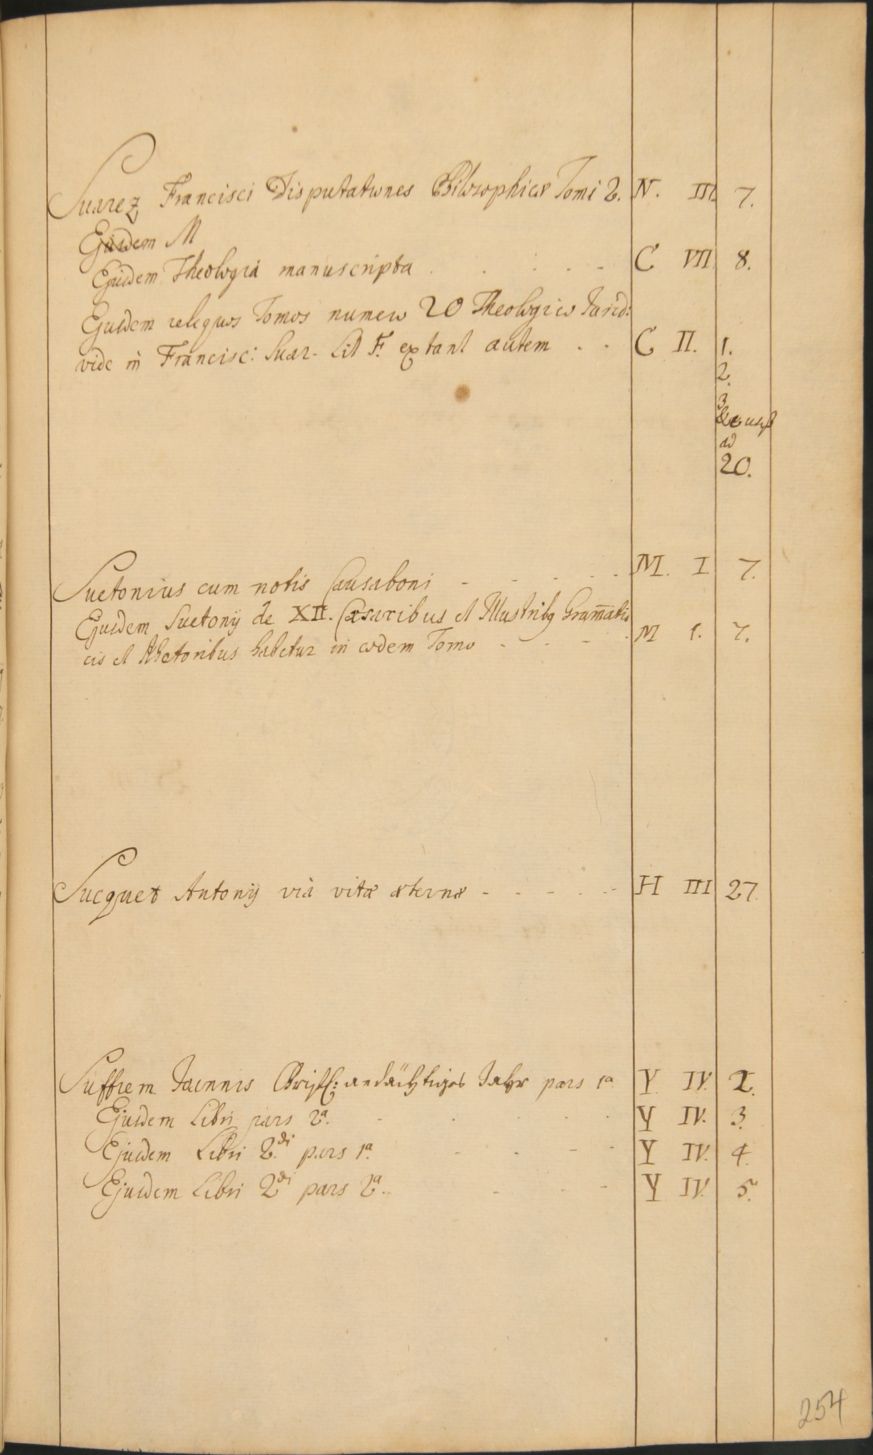 Suarez Francisci Disputationes Philosophicæ Tomi 2. N. III 7.
Ejusdem M
Ejusdem Theologia manuscripta . . . . . C VII 8.
Ejusdem reliquos Tomos numero 20 Theologicos
vide in Francisc: Suar. Lit F. extant autem . . C II. 1.
2.
3
ad
20.
Suetonius cum notis Causaboni - - - . . M. I 7.
Ejusdem Suetonij de XII. Cæsaribus et Illustribq Gram̄ati
cis et Rhetoribus habetur in eodem Tomo - - - - M I. 7.
Sucquet Antonij via vitæ æternæ - - - - - H III 27.
Suffrem Joannis Christl: andächtiges Jahr pars 1a Y IV. 2.
Ejusdem Libri pars 2a. - - - Y IV. 3.
Ejusdem Libri 2.di pars 1a. - - - - Y IV. 4.
Ejusdem Libri 2di pars 2a. . - - - Y IV. 5.
254